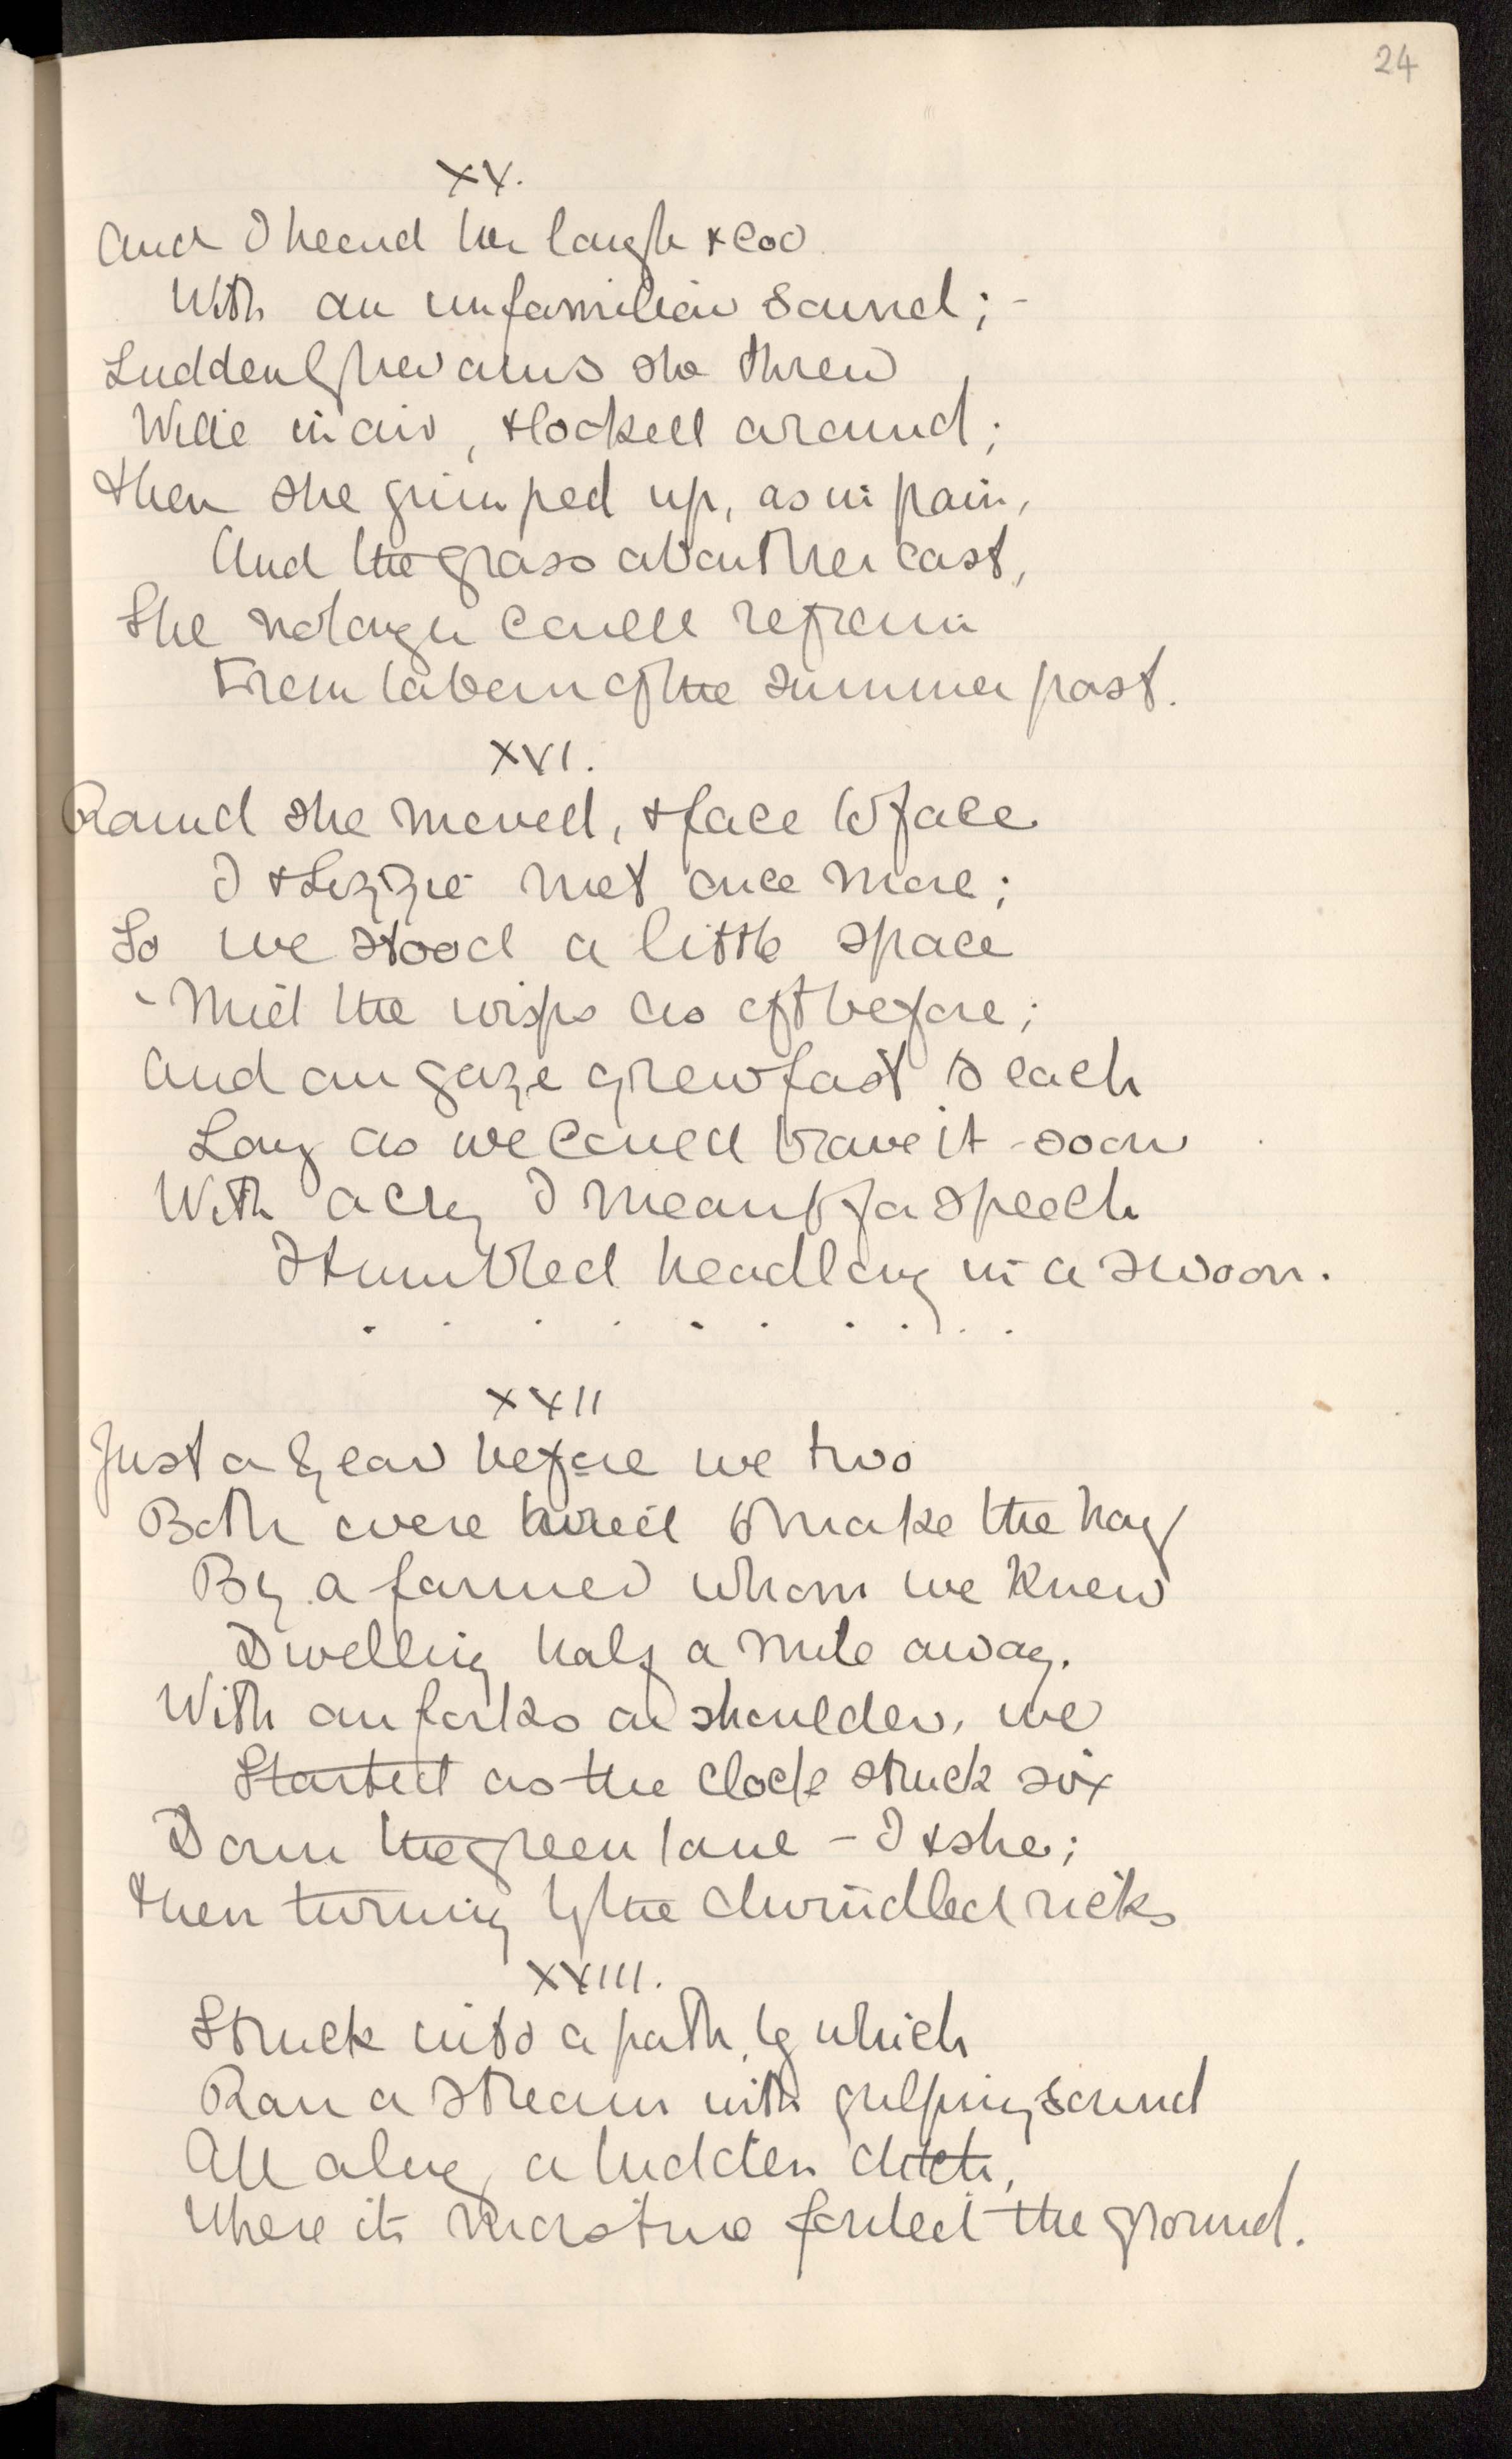 24
XV.
And I heard her laugh & coo
With an unfamiliar sound; -
Suddenly her arms she threw
Wide in air, & looked around;
Then she jumped up, as in pain,
And the grass about her cast,
She no longer could refrain
From labour of the summer past.
XVI.
Round she moved, & face to face
I & Lizzie met once more;
So we stood a little space
'Mid the wisps as oft before;
And our gaze grew fast to each
Long as we could brave it - soon
With a cry I meant for speech
I tumbled headlong in a swoon.
. . . . . . . . . .
XXII
Just a year before we two
Both were hired to make the hay
By a farmer whom we knew
Dwelling half a mile away.
With our forks on shoulder, we
Started as the clock struck six
Down the green lane - I & she;
Then turning by the dwindled ricks
XXIII.
Struck into a path, by which
Ran a stream with gulping sound
All along a hidden ditch,
Where its moisture fouled the ground.